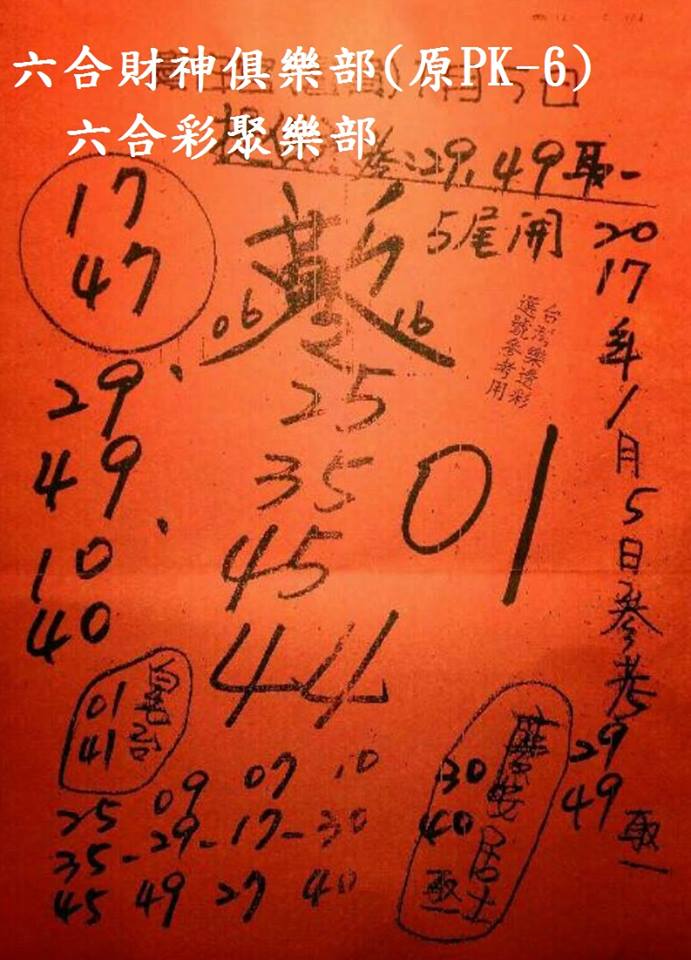 六合財神俱樂部(原PK-6)
六合彩聚樂部
29, 49 取一
5尾開
17
47
06
16
29、
49
10、
40
25
35
45
44
01
2017年1月5日參考
29
49
取一
台彩樂透彩
選號參考用
01
41
25 09 07 10
35-29-17-30
45 49 27 40
30
40
取一
居士